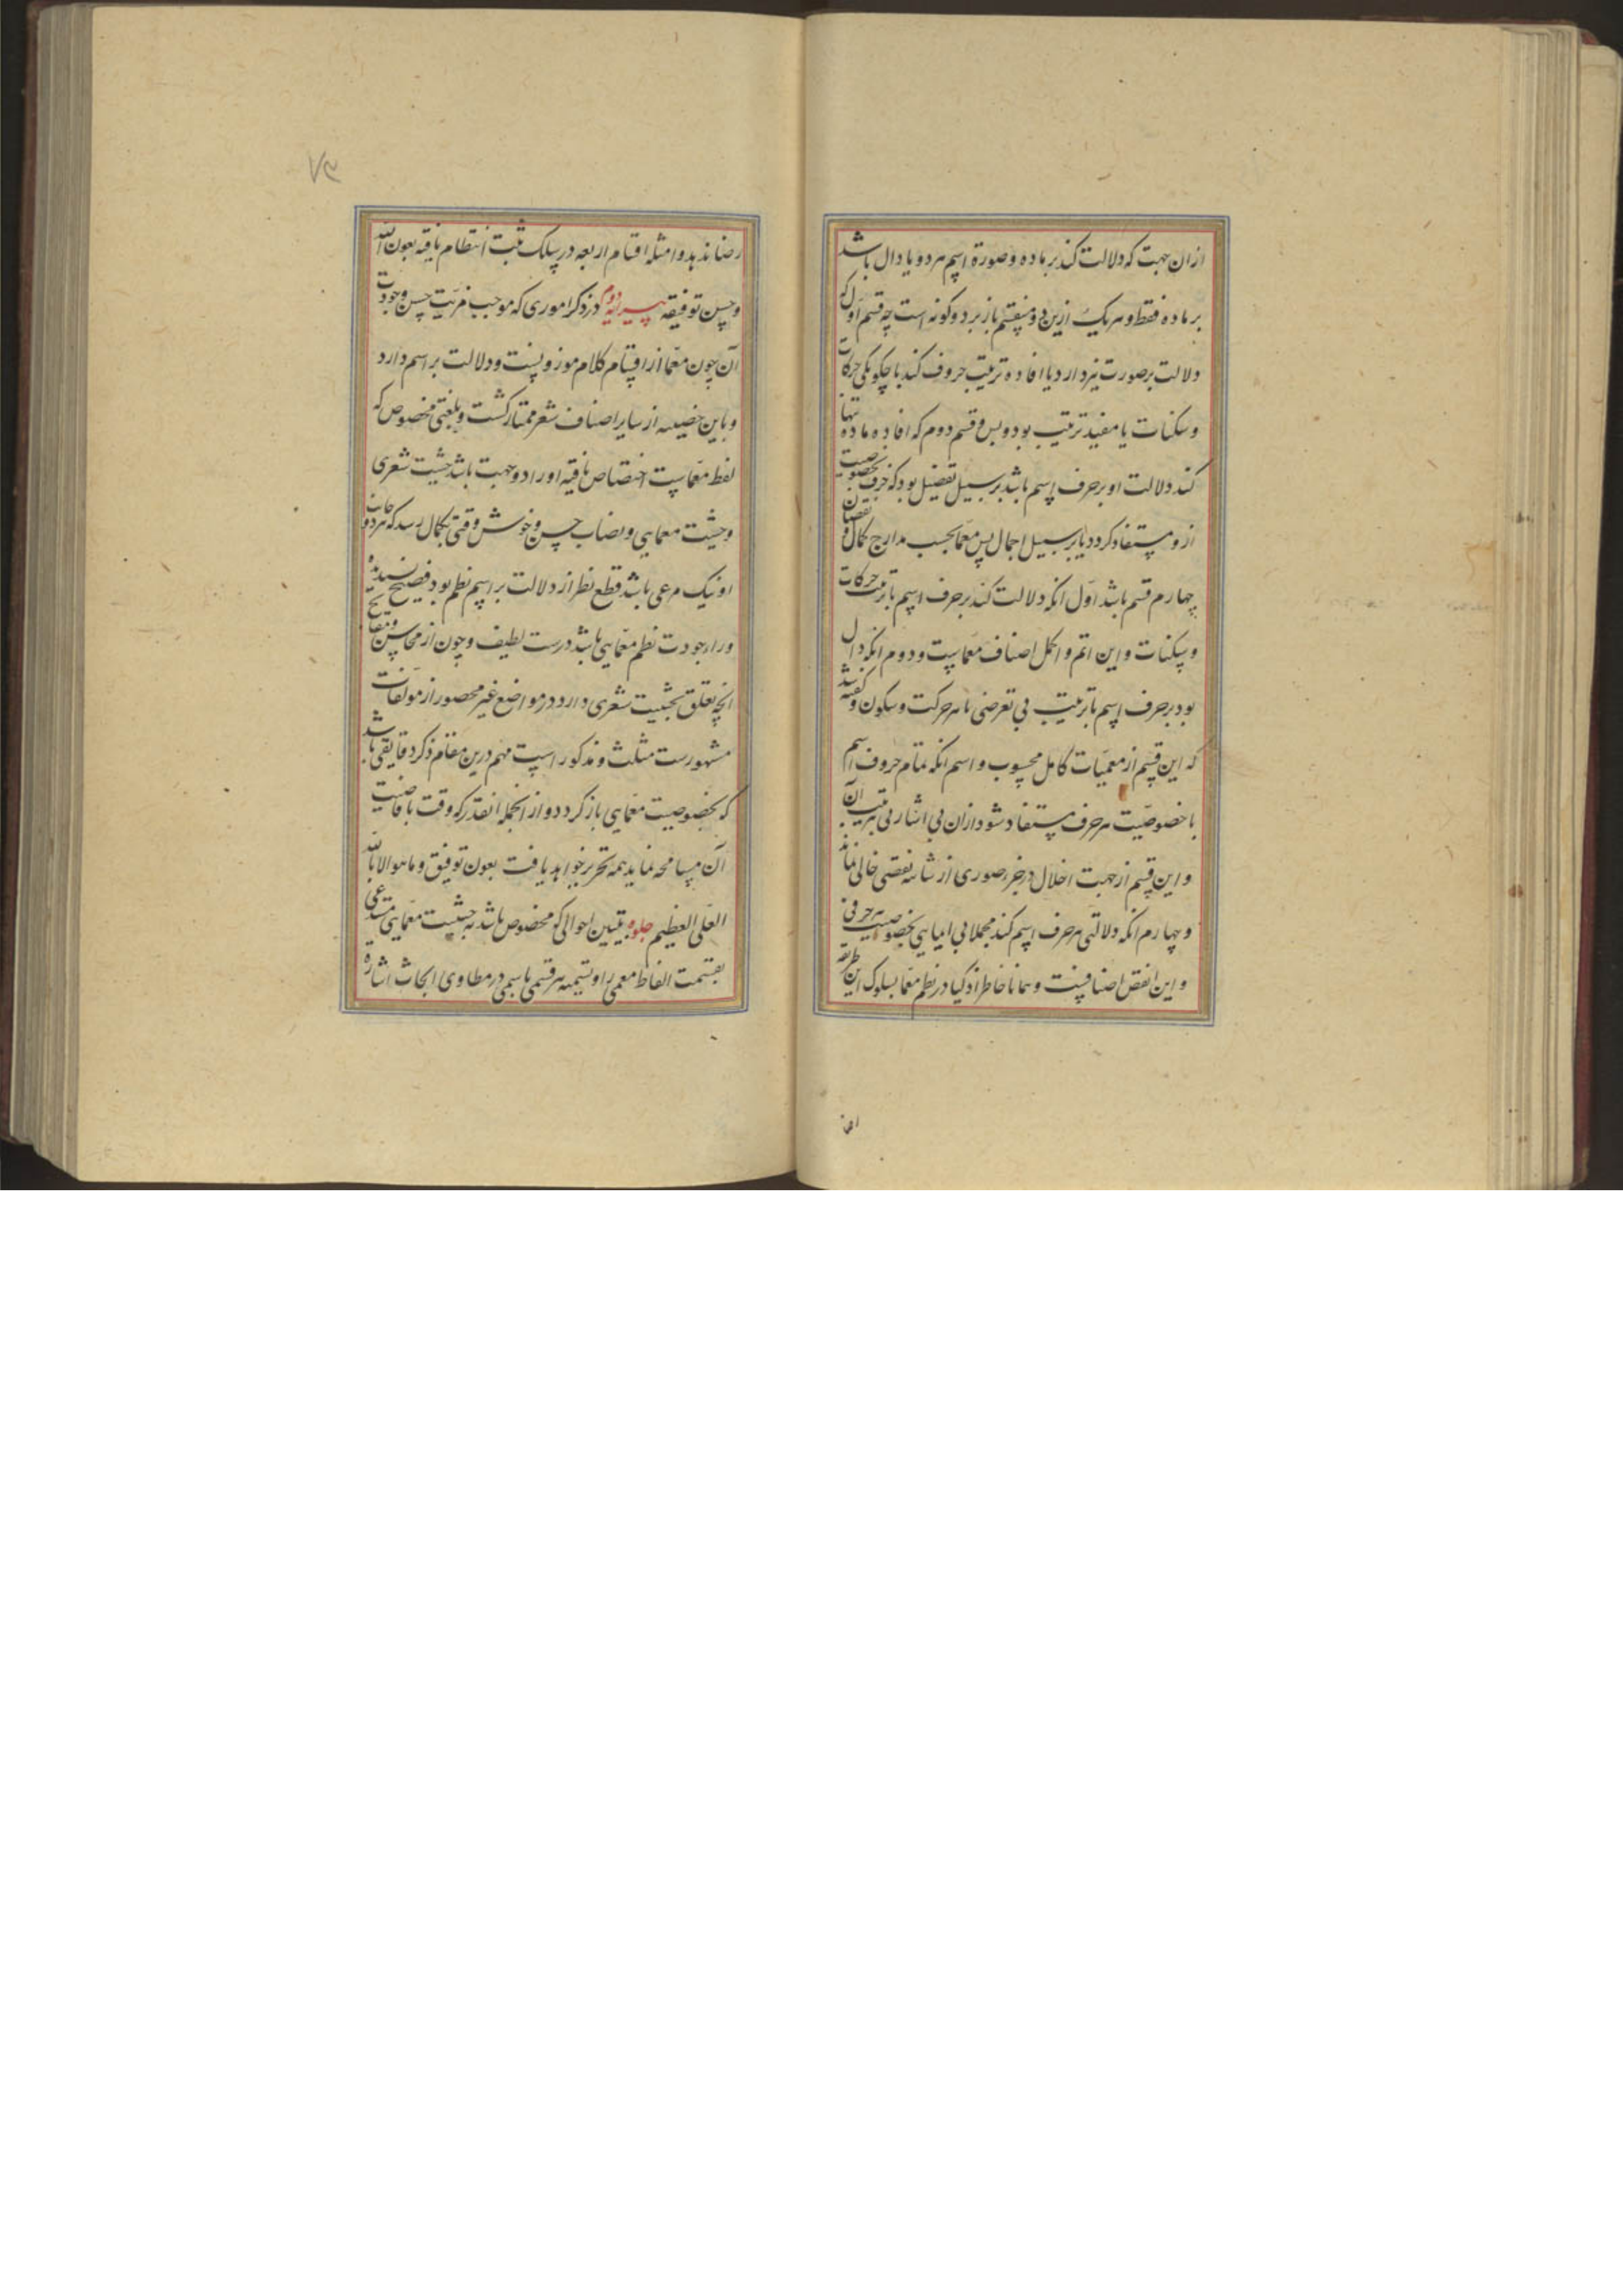 ازان جهت که دلالت کند بر ماده و صورة اسم هر دو یا دال باشد
بر ماده فقط و هر یک ازین دو منقسم باز بر دو کونه است چه قسم اول که
دلالت بر صورت نیز دارد یا افاده ترتیب حروف کند با چکونکی حرکات
و سکنات یا مفید ترتیب بود و بس و قسم دوم که افاده ماده تنها
کند دلالت او بر حرف اسم باشد بر سبیل تفصیل بود که حرف بخصوصیت
ازو مستفاد کردد یا بر سبیل اجمال پس معما بحسب مدارج کمال و نقصان
چهارم قسم باشد اول انکه دلالت کند بر حرف اسم با ترتیب حرکات
و سکنات و این اتم و اکمل اصناف معماست و دوم انکه دال
بود بر حرف اسم با ترتیب بی تعرضی تا هر حرکت و سکون و کفته شد
که این قسم از معمیات کامل محسوب و اسم انکه تمام حروف اسم
با خصوصیت هر حرف مستفاد شود ازان بی اشارتی بترتیب آن
و این قسم از جهت اخلال در جزء صوری از شائبه نقصی خالی نماند
و چهارم انکه دلالتی هر حرف اسم کند مجملا بی ایمایی بخصوصیت هر حرفی
و این انقص اصنافست و همانا خاطر اذکیا در نظم معما بسلوک این طریقه
رضا ندهد و امثله اقسام اربعه در سلک مثبت انتظام یافته بعون الله
و حسن توفیقه پیرایه دوم در ذکر اموری که موجب مزیت حسن و جودت
آن چون معما از اقسام کلام موزونست و دلالت بر اسم دارد
و باین خصیصه از سایر اصناف شعر ممتاز کشت و بلغتی مخصوص که
لفظ معماست اختصاص یافته او را دو جهت باشد حیثیت شعری
و حیثیت معمایی و نصاب حسن و خوش وقتی بکمال رسد که هر دو جانب
او نیک مرعی باشد قطع نظر از دلالت بر اسم نظم بود فصیح پسندیده
ورا جودت نظم معمایی باشد درست لطیف و چون از محاسن و مقابح
انچه تعلق بحیثیت شعری دارد در مواضع غیر محصور از مولفات
مشهورست مثلث و مذکور است مهم درین مقام ذکر دقایقی باشد
که بخصوصیت معمایی باز کردد و از انجمله انقدر که وقت با فاضیت
آن مسامحه نماید همه تحریر خواهد یافت بعون توفیق و ما هو الا بالله
العلی العظیم جلوه بتبیین احوالی که مخصوص باشد به حیثیت معمایی مستدعی
بقسمت الفاظ معمی را و تسمیه هر قسمی باسمی در مطاوی ابحاث اشاره
این